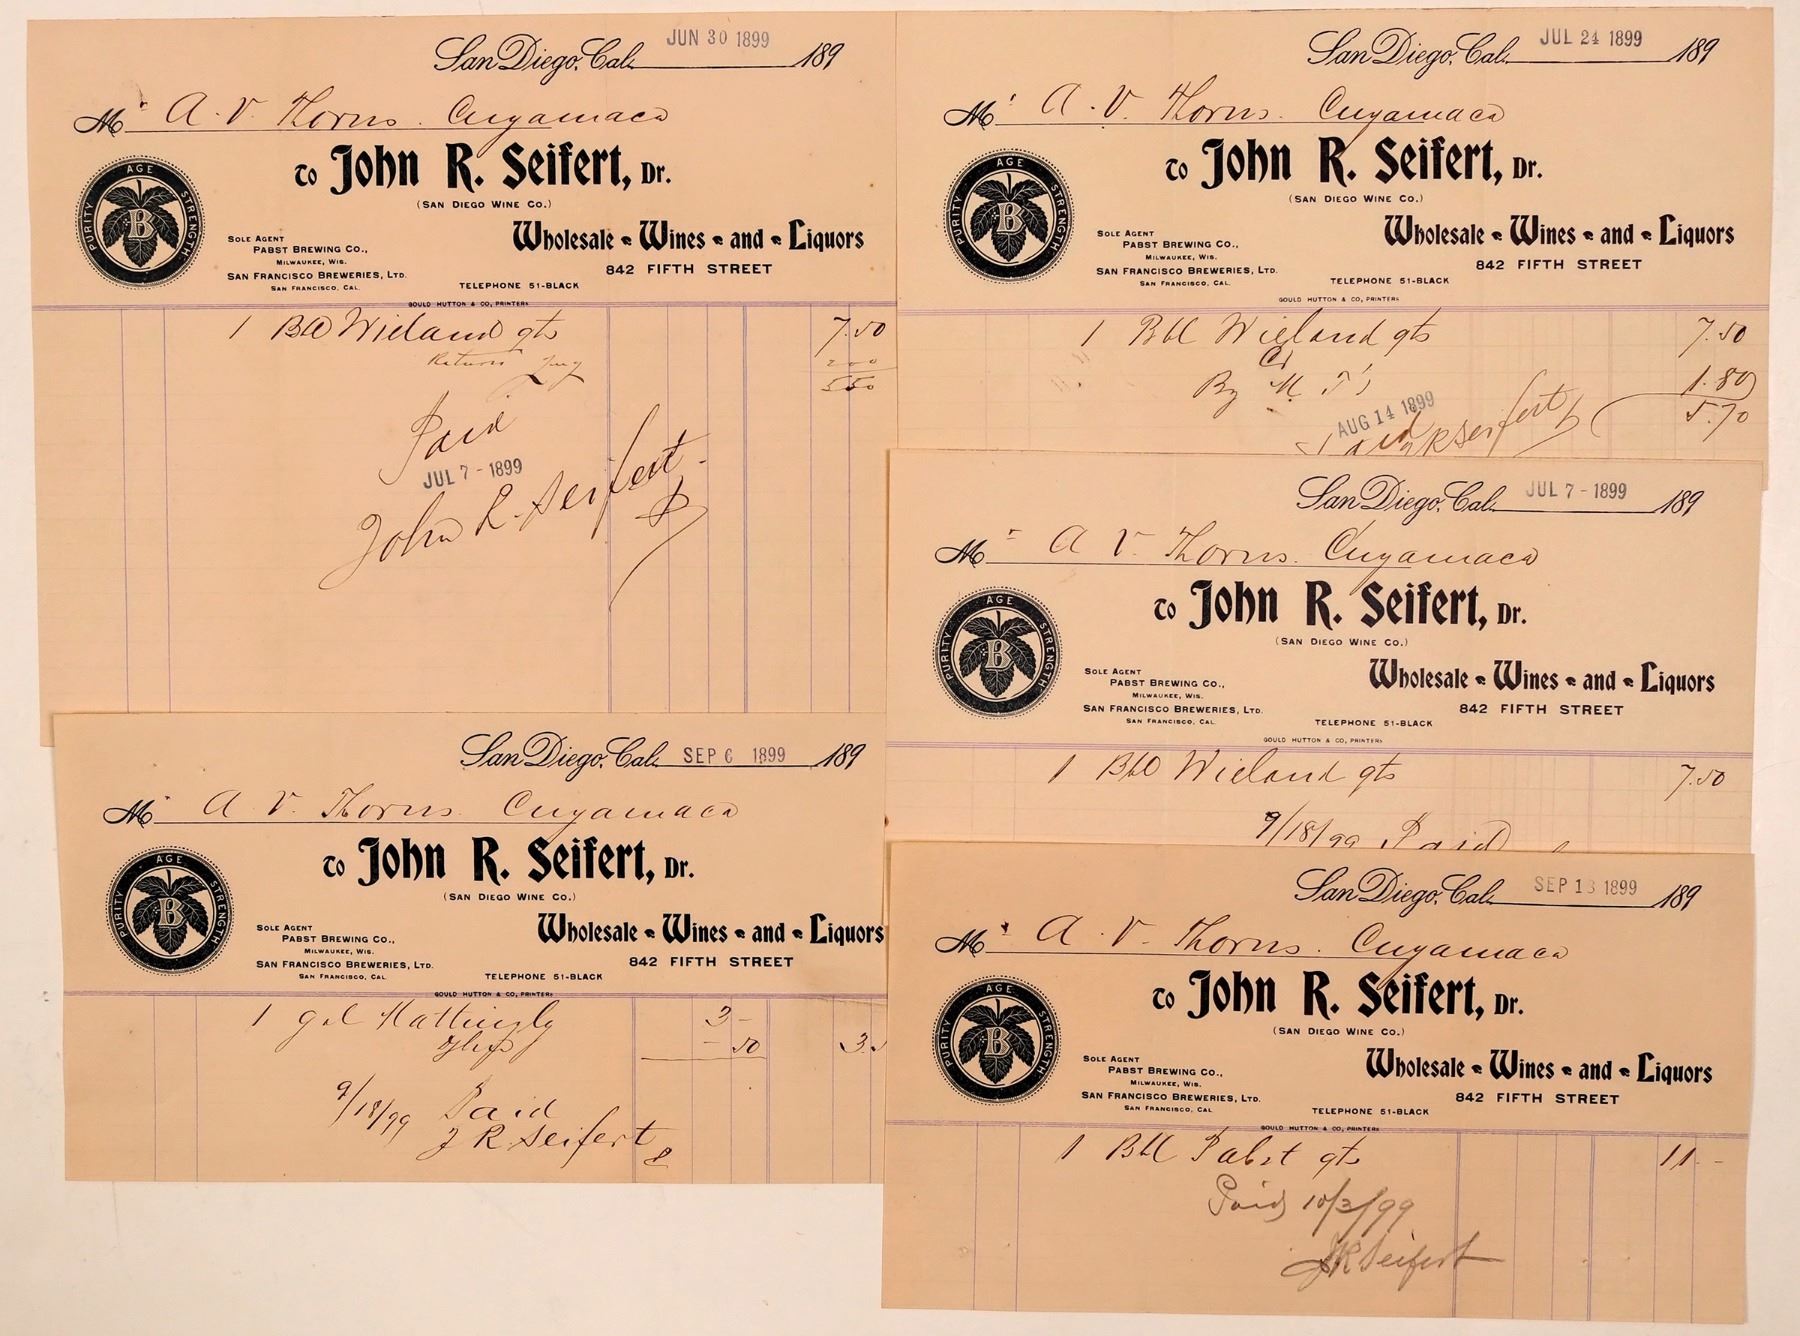 San Diego, Cal. JUN 30 1899 189
Mr A. V. Thorns. Cuyamaca
To John R. Seifert, Dr.
(SAN DIEGO WINE CO.)
PURITY AGE STRENGTH
B
Wholesale Wines and Liquors
SOLE AGENT
PABST BREWING CO.,
MILWAUKEE, WIS.
842 FIFTH STREET
SAN FRANCISCO BREWERIES, LTD.
SAN FRANCISCO, CAL.
TELEPHONE 51-BLACK
GOULD HUTTON & CO, PRINTERS
1 Bbl Wieland qts 7.50
Return 200
5 50
Paid
JUL 7 - 1899
John R. Seifert
San Diego, Cal. JUL 24 1899 189
Mr A. V. Thorns. Cuyamaca
To John R. Seifert, Dr.
(SAN DIEGO WINE CO.)
PURITY AGE STRENGTH
B
Wholesale Wines and Liquors
SOLE AGENT
PABST BREWING CO.,
MILWAUKEE, WIS.
842 FIFTH STREET
SAN FRANCISCO BREWERIES, LTD.
SAN FRANCISCO, CAL.
TELEPHONE 51-BLACK
GOULD HUTTON & CO, PRINTERS
1 Bbl Wieland qts 7.50
Cr
By M T's 1.80
5.70
AUG 14 1899
Paid JR Seifert
San Diego, Cal. JUL 7 - 1899 189
Mr A V. Thorns. Cuyamaca
To John R. Seifert, Dr.
(SAN DIEGO WINE CO.)
PURITY AGE STRENGTH
B
Wholesale Wines and Liquors
SOLE AGENT
PABST BREWING CO.,
MILWAUKEE, WIS.
842 FIFTH STREET
SAN FRANCISCO BREWERIES, LTD.
SAN FRANCISCO, CAL.
TELEPHONE 51-BLACK
GOULD HUTTON & CO, PRINTERS
1 Bbl Wieland qts 7.50
9/18/99 Paid
San Diego, Cal. SEP 6 1899 189
Mr A. V. Thorns. Cuyamaca
To John R. Seifert, Dr.
(SAN DIEGO WINE CO.)
PURITY AGE STRENGTH
B
Wholesale Wines and Liquors
SOLE AGENT
PABST BREWING CO.,
MILWAUKEE, WIS.
842 FIFTH STREET
SAN FRANCISCO BREWERIES, LTD.
SAN FRANCISCO, CAL.
TELEPHONE 51-BLACK
GOULD HUTTON & CO, PRINTERS
1 gal Mattingly 3 –
– 50 3.5
9/18/99 Paid
J R. Seifert
San Diego, Cal. SEP 13 1899 189
Mr A. V. Thorns. Cuyamaca
To John R. Seifert, Dr.
(SAN DIEGO WINE CO.)
PURITY AGE STRENGTH
B
Wholesale Wines and Liquors
SOLE AGENT
PABST BREWING CO.,
MILWAUKEE, WIS.
842 FIFTH STREET
SAN FRANCISCO BREWERIES, LTD.
SAN FRANCISCO, CAL.
TELEPHONE 51-BLACK
GOULD HUTTON & CO, PRINTERS
1 Bbl Pabst qts 11 –
Paid 10/3/99
JR Seifert